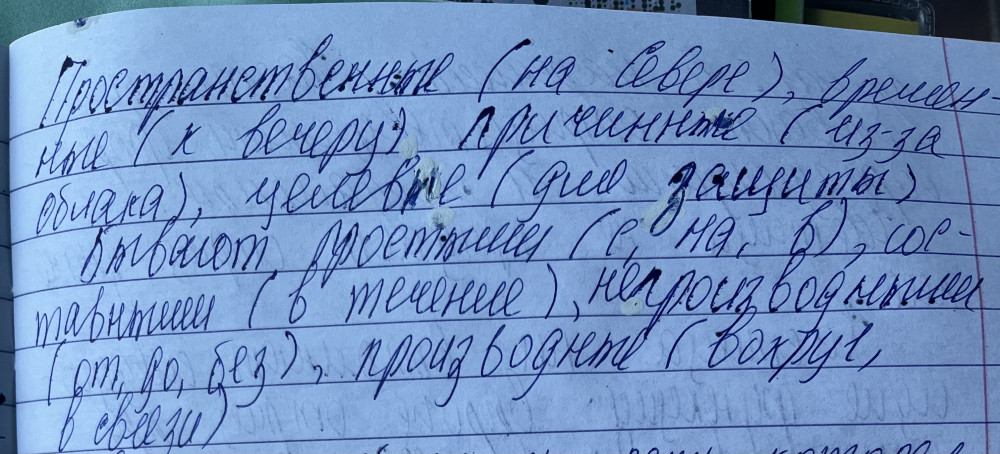 Пространственные (на Севере), времен-
ные (к вечеру) причинные (из-за
облака), целевые (для защиты)
Бывают простыми (с, на, в), сос-
тавными (в течение), непроизводными
(от, до, без), производные (вокруг,
в связи)